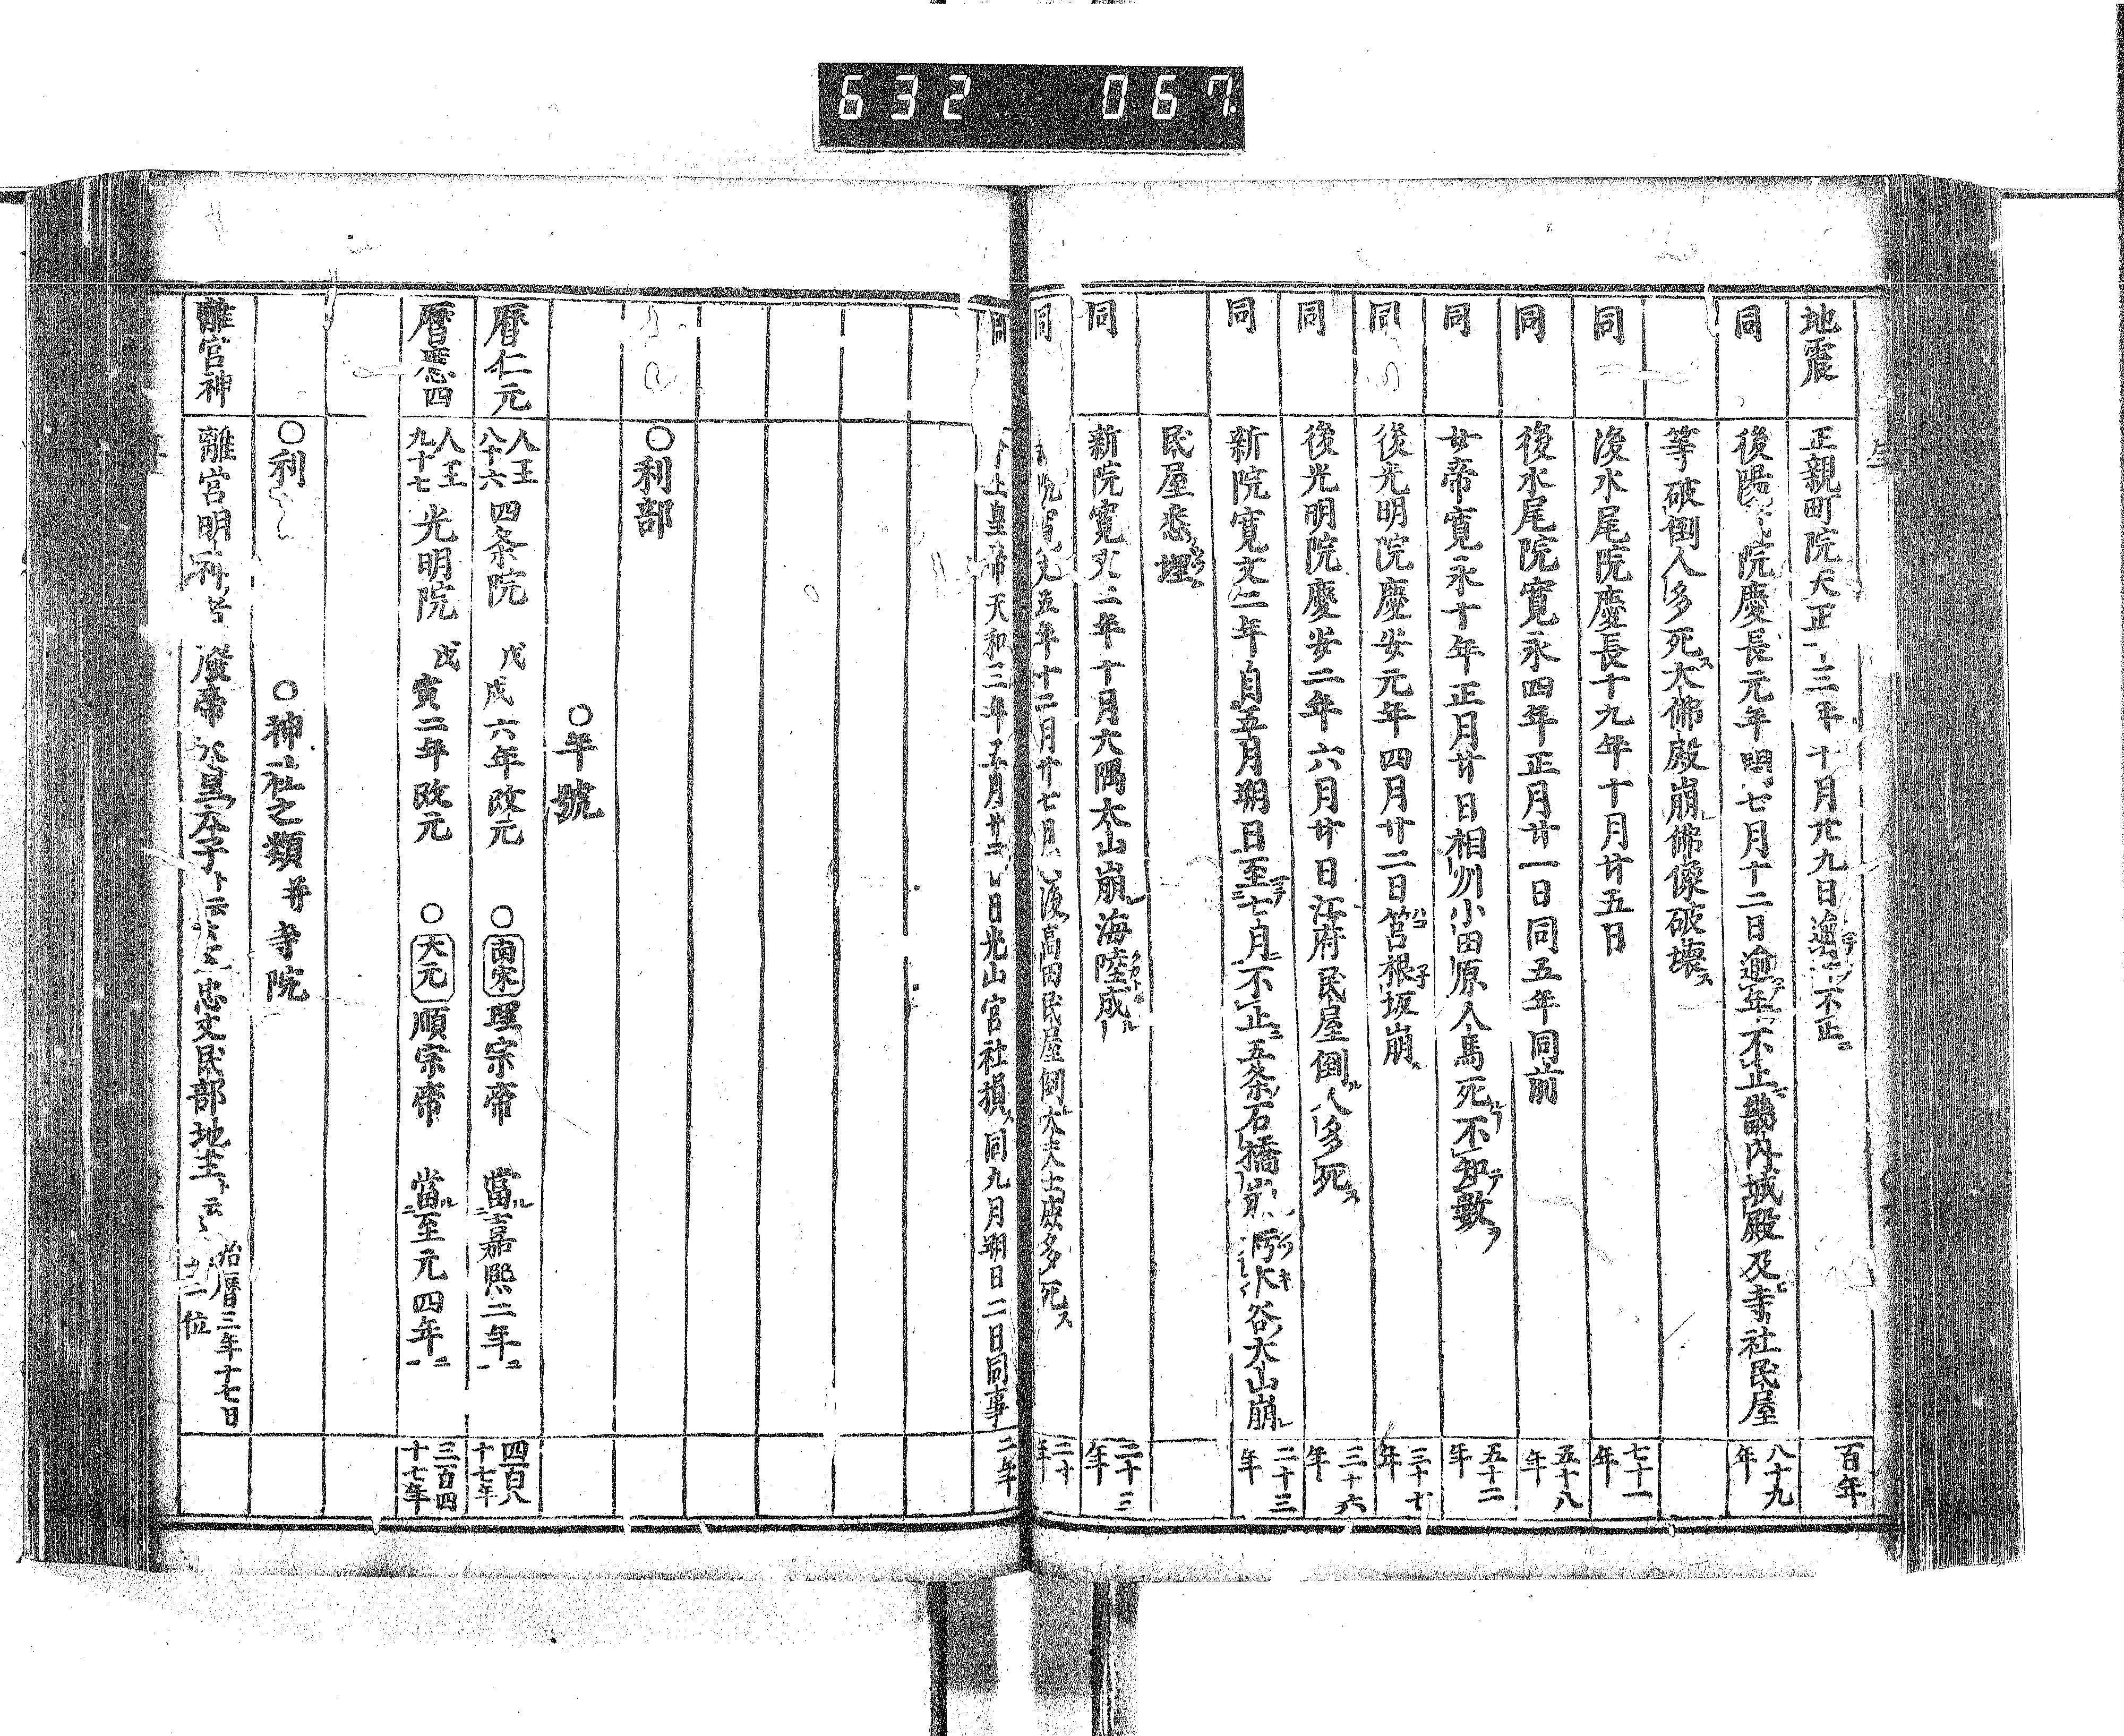 632 067
地震 正親町院天正 三年十月廿九日 不止 百年
同 後陽 院慶長元年 七月十二日逾年不止畿内城殿及寺社民屋 八十九年
等破倒人多死ス大佛殿崩佛像破壊ス
同 後水尾院慶長十九年十月廿五日 七十一年
同 後水尾院寛永四年正月廿一日同五年同前 五十八年
同 廿帝寛永十年正月廿日相州小田原人馬死不知數 五十二年
同 後光明院慶安元年四月廿二日筥根坂崩 三十七年
同 後光明院慶安二年六月廿日江府民屋倒人多死ス 三十六年
同 新院寛文二年自五月朔日至七月不止五条石橋崩 朽木谷大山崩 二十三年
民屋悉埋
同 新院寛文二年十月大隅太山崩海陸成 二十三年
同 院寛文五年十二月廿七日 後高田民屋倒大夫士庶多死ス 二十年
同 上皇帝天和三年五月廿 日光山宮社損ス同九月朔日二日同事 二年
○利部
○年號
暦仁元 人王八十六 四条院 戊戌六年改元 ○南宋理宗帝 當ル嘉熙二年ニ 四百八十七年
暦應四 人王九十七 光明院 戊寅二年改元 ○大元順宗帝 當ル至元四年ニ 三百四十七年
○利 ○神社之類并寺院
離宮神 離宮明神 廢帝 忠文民部地主ト云 治暦三年十七日 位